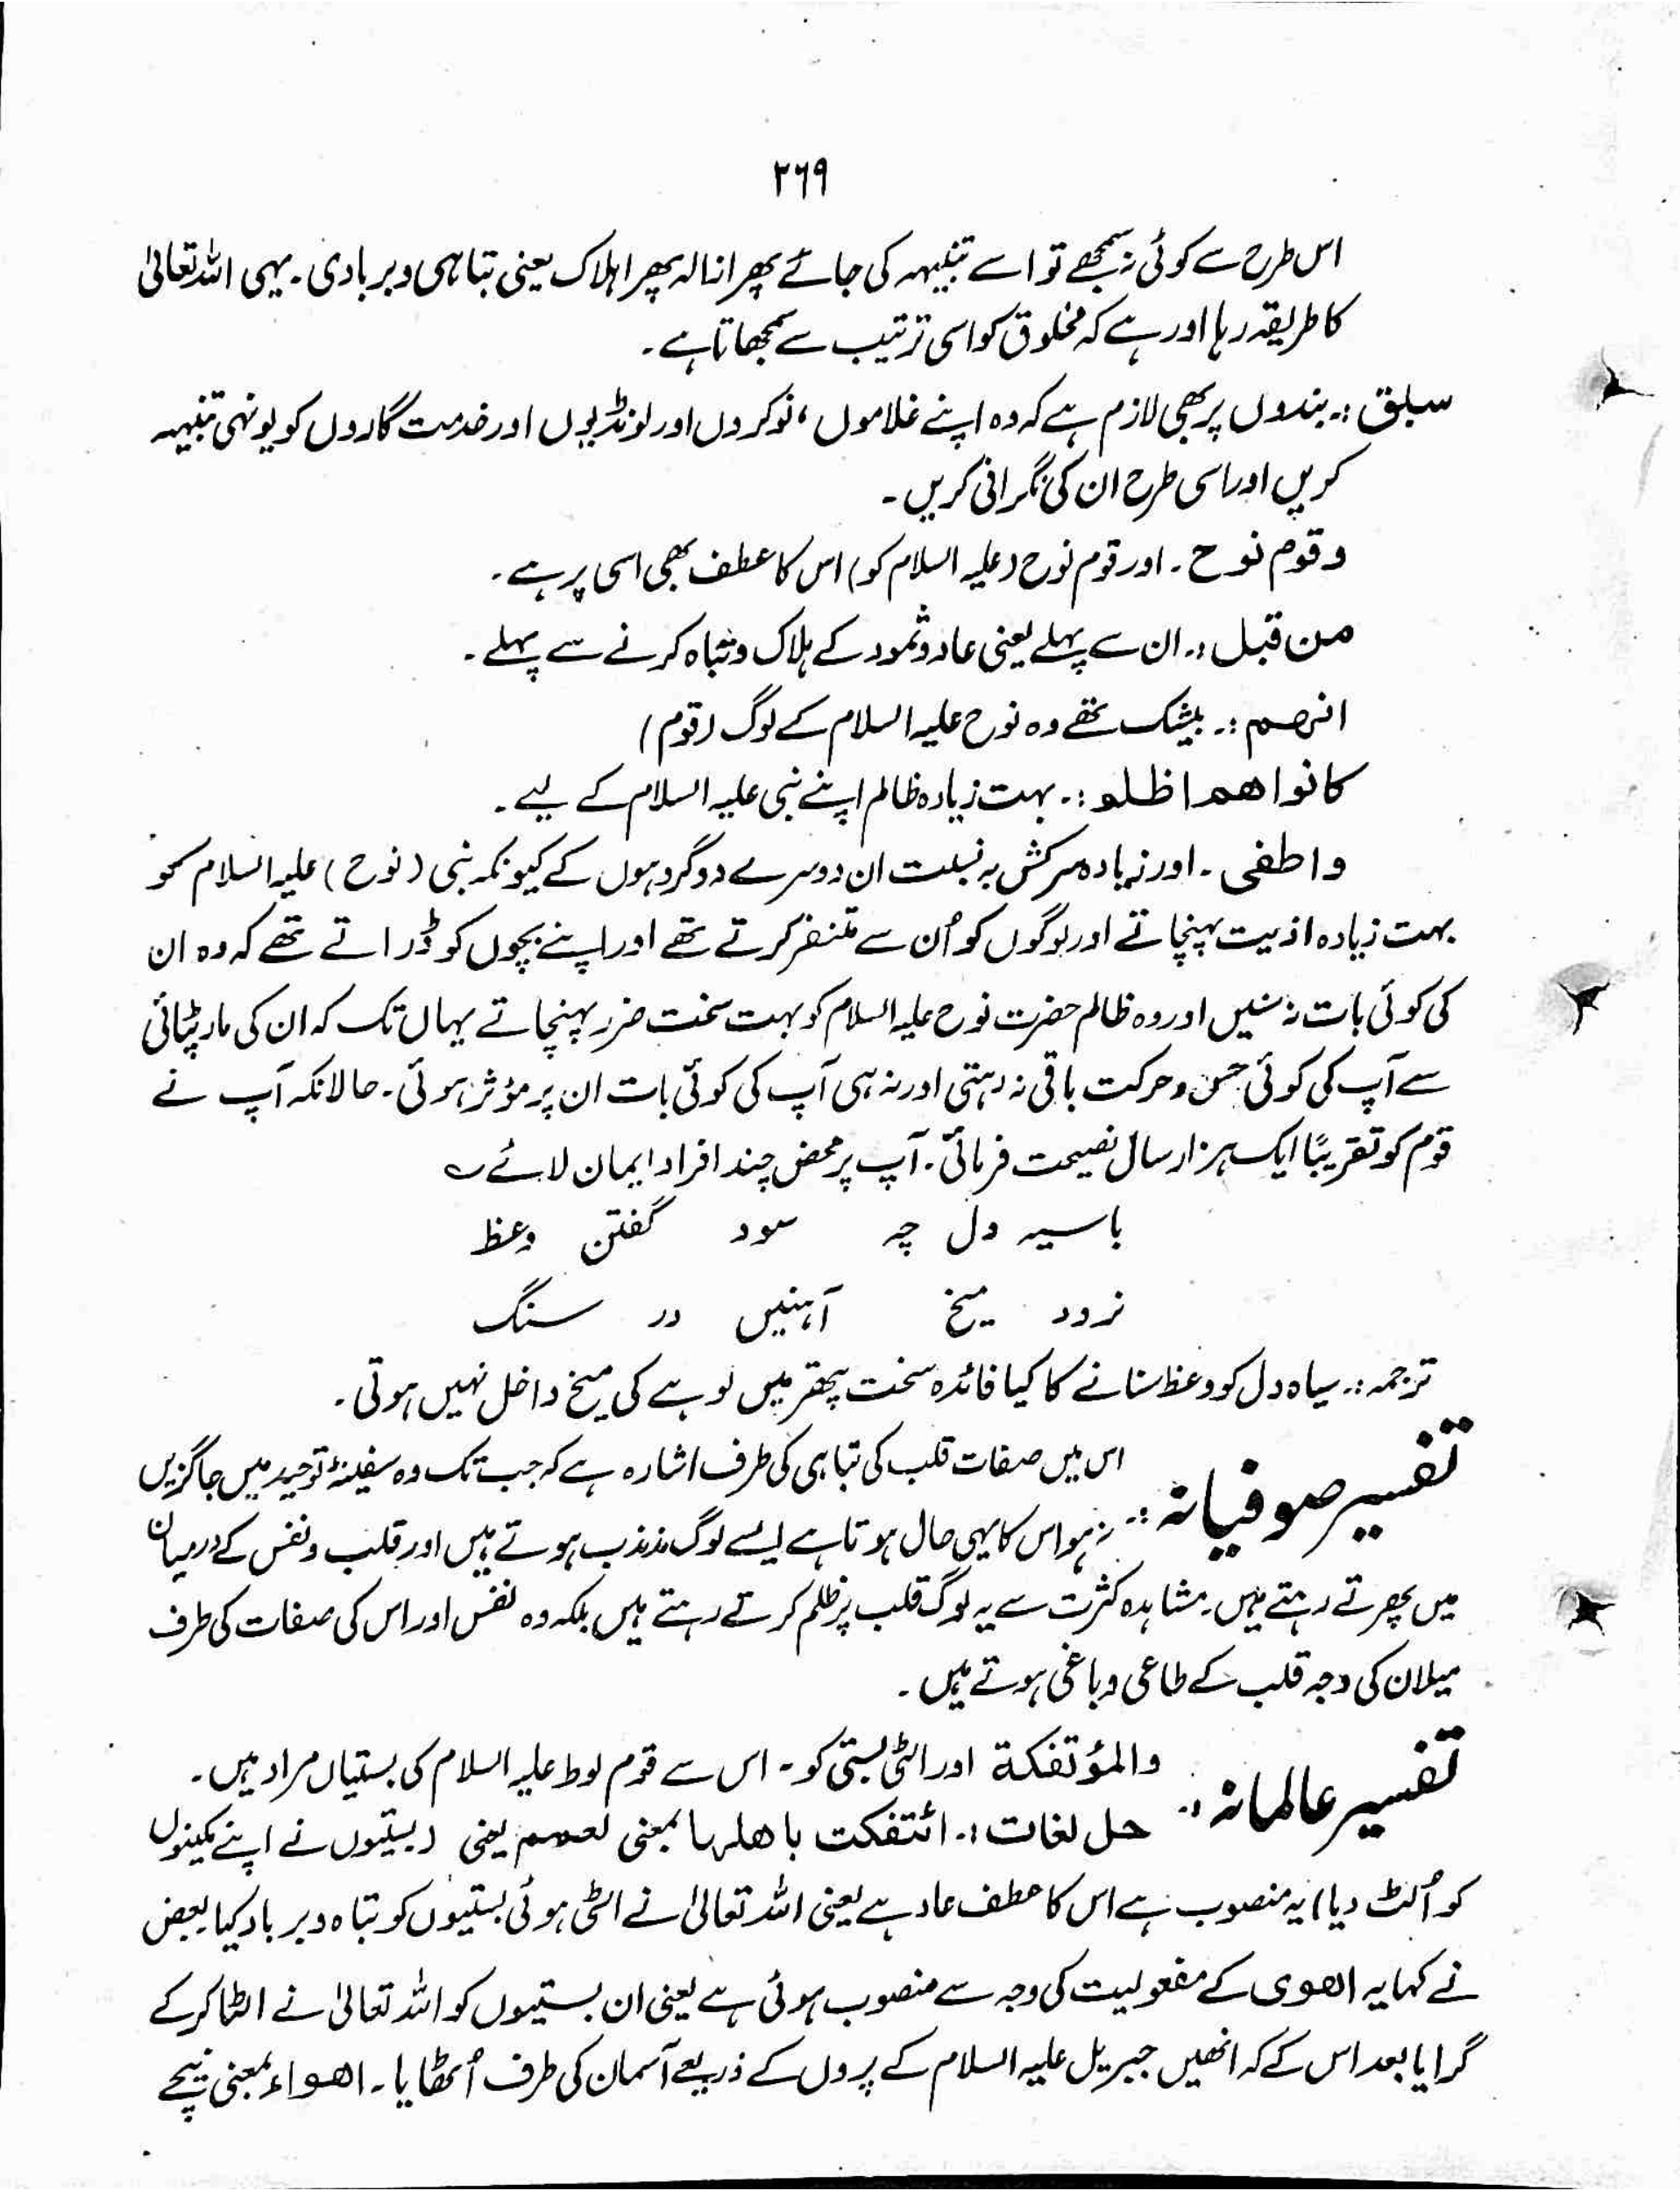 ۲۶۹
اس طرح سے کوئی نہ سمجھے تو اسے تنبیہہ کی جائے پھر انالہ پھر اہلاک یعنی تباہی و بربادی۔ یہی اللہ تعالیٰ
کا طریقہ رہا اور ہے کہ مخلوق کو اسی ترتیب سے سمجھاتا ہے۔
سبق :۔ بندوں پر بھی لازم ہے کہ وہ اپنے غلاموں، نوکروں اور لونڈیوں اور خدمت گاروں کو یونہی تنبیہہ
کریں اور اسی طرح ان کی نگرانی کریں۔
و قوم نوح۔ اور قوم نوح (علیہ السلام کو) اس کا عطف بھی اسی پر ہے۔
من قبل :۔ ان سے پہلے یعنی عاد و ثمود کے ہلاک و تباہ کرنے سے پہلے۔
انھم :۔ بیشک تھے وہ نوح علیہ السلام کے لوگ (قوم)
کانوا ھم اظلم :۔ بہت زیادہ ظالم اپنے نبی علیہ السلام کے لیے۔
واطغی۔ اور زیادہ سرکش بہ نسبت ان دوسرے دو گروہوں کے کیونکہ نبی (نوح) علیہ السلام کو
بہت زیادہ اذیت پہنچاتے اور لوگوں کو اُن سے متنفر کرتے تھے اور اپنے بچوں کو ڈراتے تھے کہ وہ ان
کی کوئی بات نہ سنیں اور وہ ظالم حضرت نوح علیہ السلام کو بہت سخت ضرر پہنچاتے یہاں تک کہ ان کی مار پٹائی
سے آپ کی کوئی حس و حرکت باقی نہ رہتی اور نہ ہی آپ کی کوئی بات ان پر مؤثر ہوئی۔ حالانکہ آپ نے
قوم کو تقریباً ایک ہزار سال نصیحت فرمائی۔ آپ پر محض چند افراد ایمان لائے ؎
با سیہ دل چہ سود گفتن وعظ
نرود میخ آہنیں در سنگ
ترجمہ :۔ سیاہ دل کو وعظ سنانے کا کیا فائدہ سخت پتھر میں لوہے کی میخ داخل نہیں ہوتی۔
تفسیر صوفیانہ :۔ اس میں صفات قلب کی تباہی کی طرف اشارہ ہے کہ جب تک وہ سفینۂ توحید میں جاگزیں
نہ ہو اس کا یہی حال ہوتا ہے ایسے لوگ مذبذب ہوتے ہیں اور قلب و نفس کے درمیان
میں پھرتے رہتے ہیں۔ مشاہدہ کثرت سے یہ لوگ قلب پر ظلم کرتے رہتے ہیں بلکہ وہ نفس اور اس کی صفات کی طرف
میلان کی وجہ قلب کے طاغی و باغی ہوتے ہیں۔
تفسیر عالمانہ :۔ والمؤتفکۃ اور الٹی بستی کو۔ اس سے قوم لوط علیہ السلام کی بستیاں مراد ہیں۔
حل لغات :۔ ائتفکت باھلہا بمعنی یعنی (بستیوں نے اپنے مکینوں
کو اُلٹ دیا) یہ منصوب ہے اس کا عطف عاد ہے یعنی اللہ تعالیٰ نے الٹی ہوئی بستیوں کو تباہ و برباد کیا بعض
نے کہا یہ اھوی کے مفعولیت کی وجہ سے منصوب ہوئی ہے یعنی ان بستیوں کو اللہ تعالیٰ نے الٹا کر کے
گرایا بعد اس کے کہ انھیں جبریل علیہ السلام کے پروں کے ذریعے آسمان کی طرف اُٹھایا۔ اھواء بمعنی نیچے